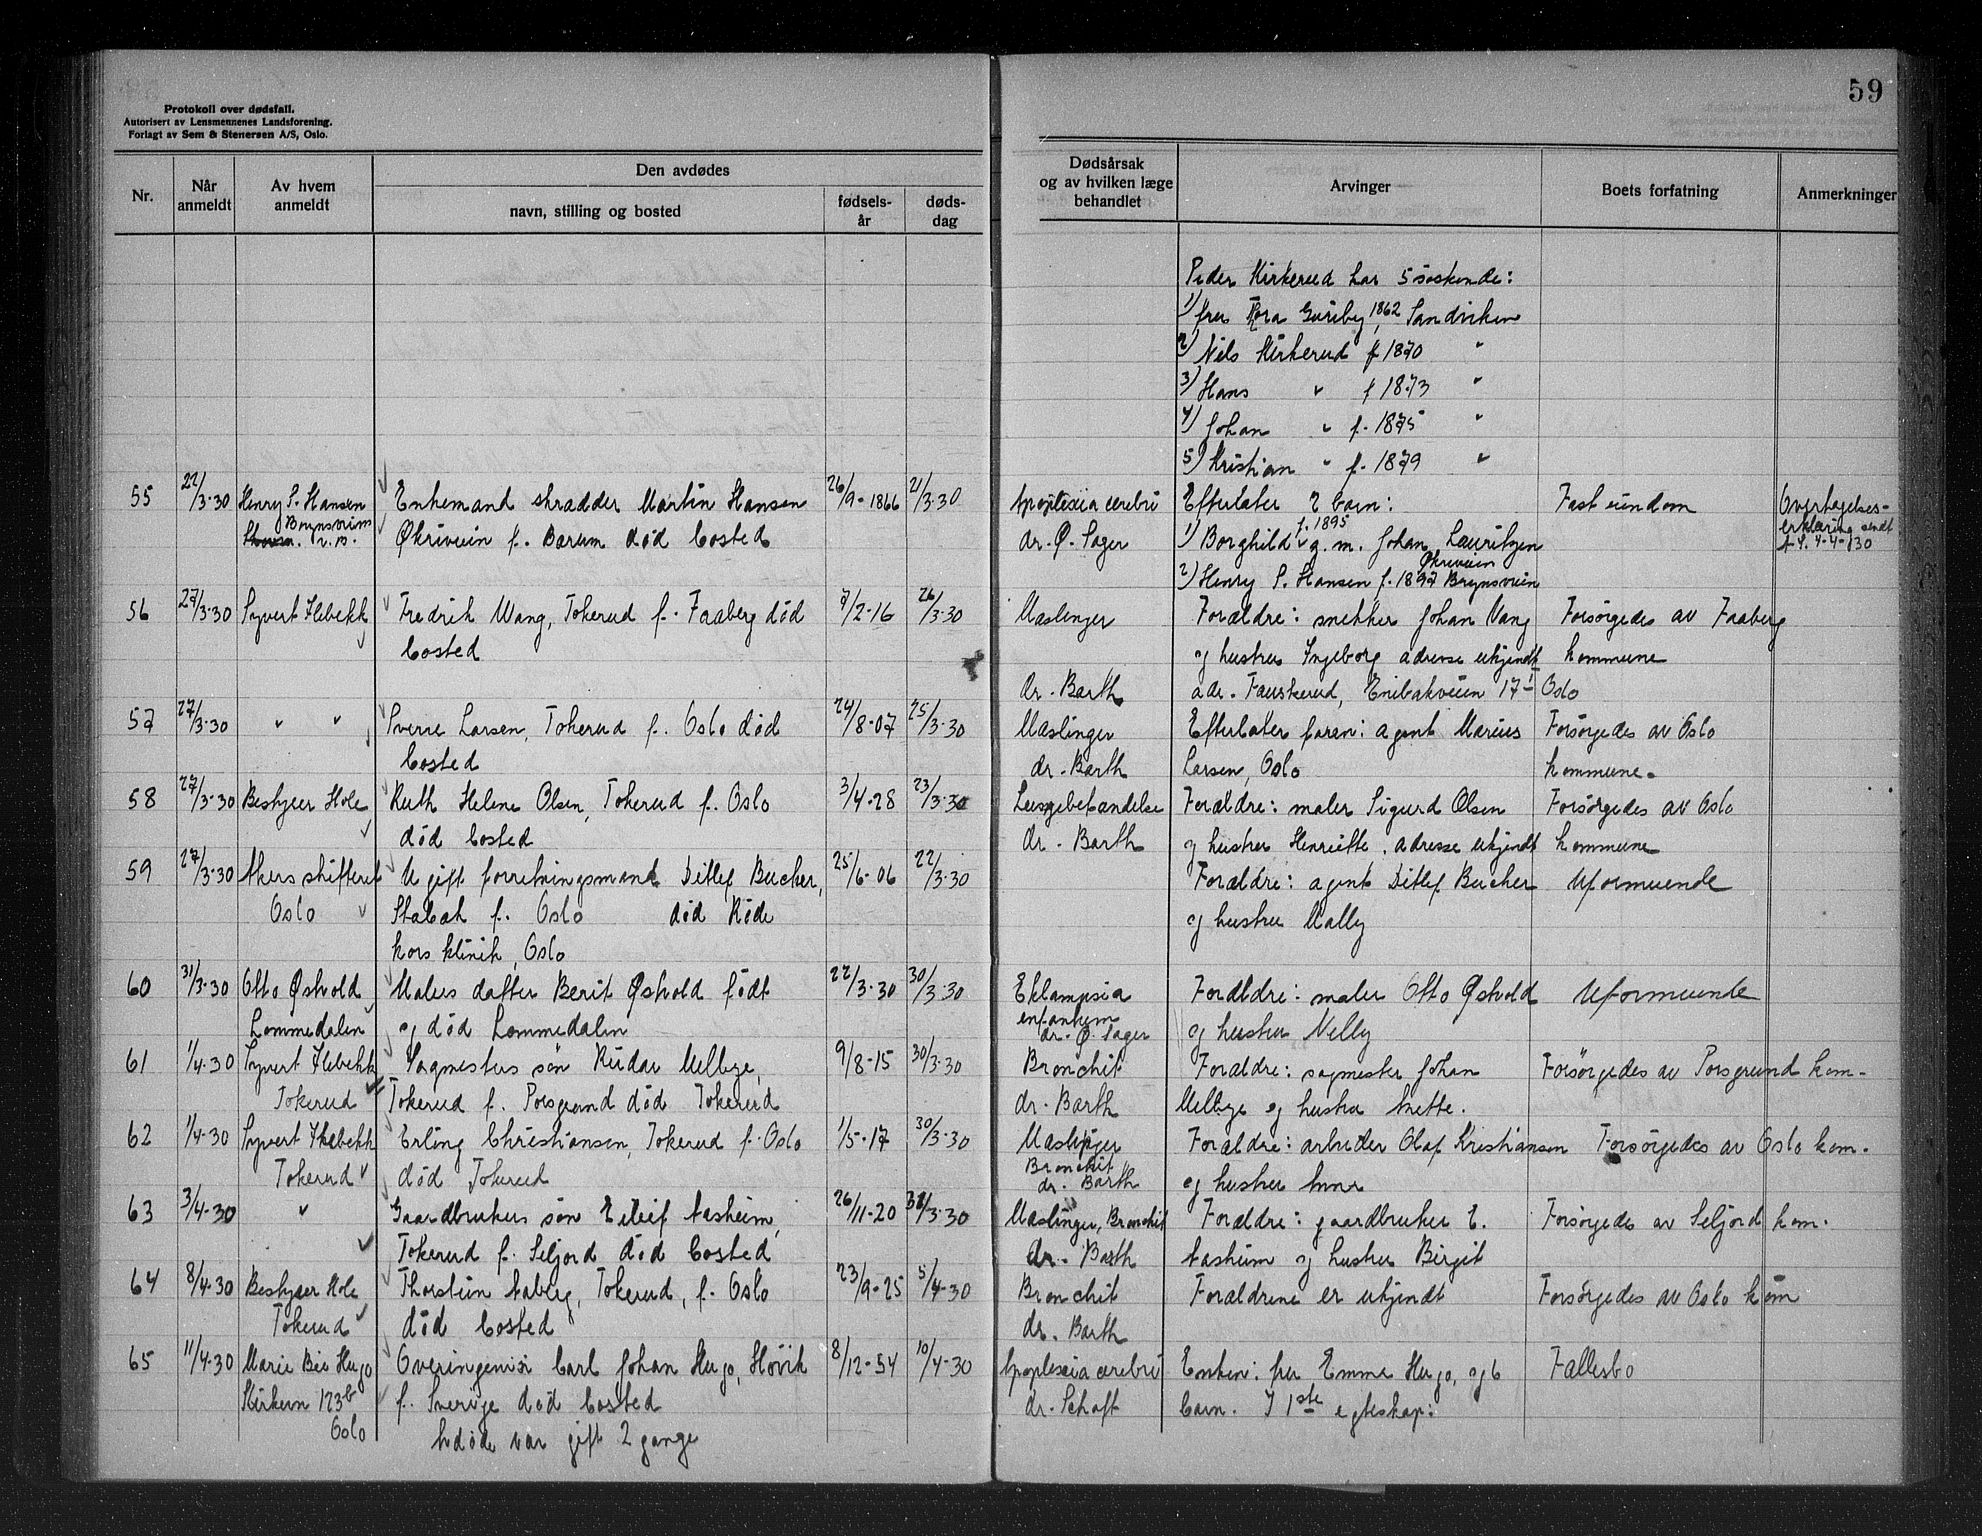 59
Protokoll over dødsfall.
Autorisert av Lensmennenes Landsforening.
Forlagt av Sem & Stenersen A/S, Oslo.
Nr.
Når anmeldt
Av hvem anmeldt
Den avdødes
navn, stilling og bosted
fødsels-år
døds-dag
Dødsårsak og av hvilken læge behandlet
Arvinger
Boets forfatning
Anmerkninger
Peder Kirkerud har 5 søskende:
1) fru Thora Guriby, 1862 Sandviken
2) Nils Kirkerud f 1870 "
3) Hans " f 1873 "
4) Johan " f. 1875 "
5) Kristian " f. 1879 "
55 22/3-30 Henry S. Hansen Enkemand skrædder Martin Hansen 26/9-1866 21/3-30 Apoplexia cerebri Efterlater 2 barn: Fast eiendom Overtagelses-
Brynsveien
Økriveien f. Bærum død bosted dr. Ø. Sager 1) Borghild f. 1895 g. m. Johan Lauritzen erklæring sendt
Økriveien 4-4-30
2) Henry S. Hansen f. 1897 Brynsveien
56 27/3-30 Syvert Flebekk Fredrik Wang, Tokerud f. Faaberg død 7/2-16 26/3-30 Mæslinger Forældre: snekker Johan Vang Forsørgedes av Faaberg
bosted og hustru Ingeborg adresse ukjendt kommune
dr. Barth adr. Fauskerud, Enebakveien 17 I Oslo
57 27/3-30 " " Sverre Larsen, Tokerud f. Oslo død 24/8-07 25/3-30 Mæslinger Efterlater faren: agent Marius Forsørgedes av Oslo
bosted dr. Barth Larsen, Oslo kommune.
58 27/3-30 Bestyrer Hole Ruth Helene Olsen, Tokerud f. Oslo 3/4-28 23/3-30 Lungebetændelse Forældre: maler Sigurd Olsen Forsørgedes av Oslo
død bosted dr. Barth og hustru Henriette, adresse ukjendt kommune
59 27/3-30 Akers skifteret Ugift forretningsmand Ditlef Bucher, 25/6-06 22/3-30 Forældre: agent Ditlef Bucher Uformuende
Oslo Stabæk f. Oslo død Røde og hustru Mally
kors klinik, Oslo
60 31/3-30 Otto Øshold Malers datter Berit Øshold født 22/3-30 30/3-30 Eklampsia Forældre: maler Otto Øshold Uformuende
Lommedalen og død Lommedalen infantum og hustru Nelly
dr. Ø. Sager
61 1/4-30 Syvert Flebekk Sagmesters søn Reidar Melbye, 9/8-15 30/3-30 Bronchit Forældre: sagmester Johan Forsørgedes av Porsgrund kom-
Tokerud Tokerud f. Porsgrund død Tokerud dr. Barth Melbye og hustru Anette.
62 1/4-30 Syvert Flebekk Erling Christiansen, Tokerud f. Oslo 1/5-17 30/3-30 Mæslinger Forældre: arbeider Olaf Kristiansen Forsørgedes av Oslo kom-
Tokerud død Tokerud Bronchit og hustru Anna
dr. Barth
63 3/4-30 " Gaardbrukers søn Eileif Aasheim, 26/11-20 31/3-30 Mæslinger, Bronchit Forældre: gaardbruker E. Forsørgedes av Seljord kom.
Tokerud f. Seljord død bosted dr. Barth Aasheim og hustru Birgit
64 8/4-30 Bestyrer Hole Thorstein Aaberg, Tokerud, f. Oslo 23/9-25 5/4-30 Bronchit Forældrene er ukjendt Forsørgedes av Oslo kom
Tokerud død bosted dr. Barth
65 11/4-30 Marie Bie Hugo Overingeniør Carl Johan Hugo, Høvik 8/12-54 10/4-30 Apoplexia cerebri Enken: fru Emma Hugo, og 6 Fællesbo
Kirkevn 123b f. Sverige død bosted dr. Schaft barn. I 1ste egteskap:
Oslo Avdøde var gift 2 gange